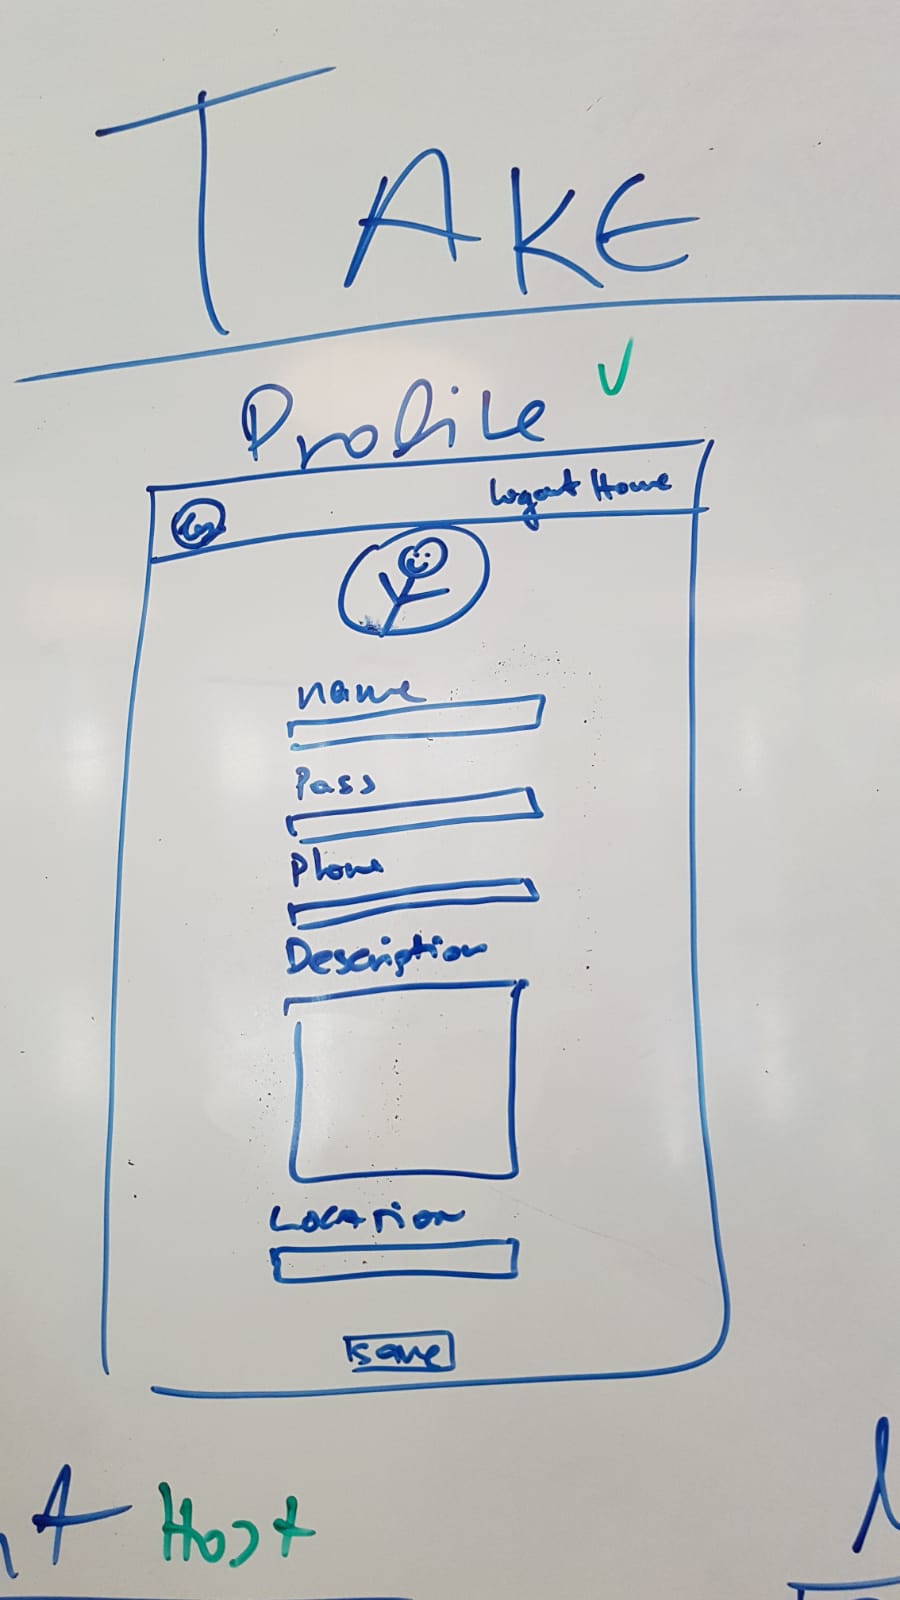 TAKE
Profile
Logout Home
name
Pass
Phone
Description
Location
save
Host